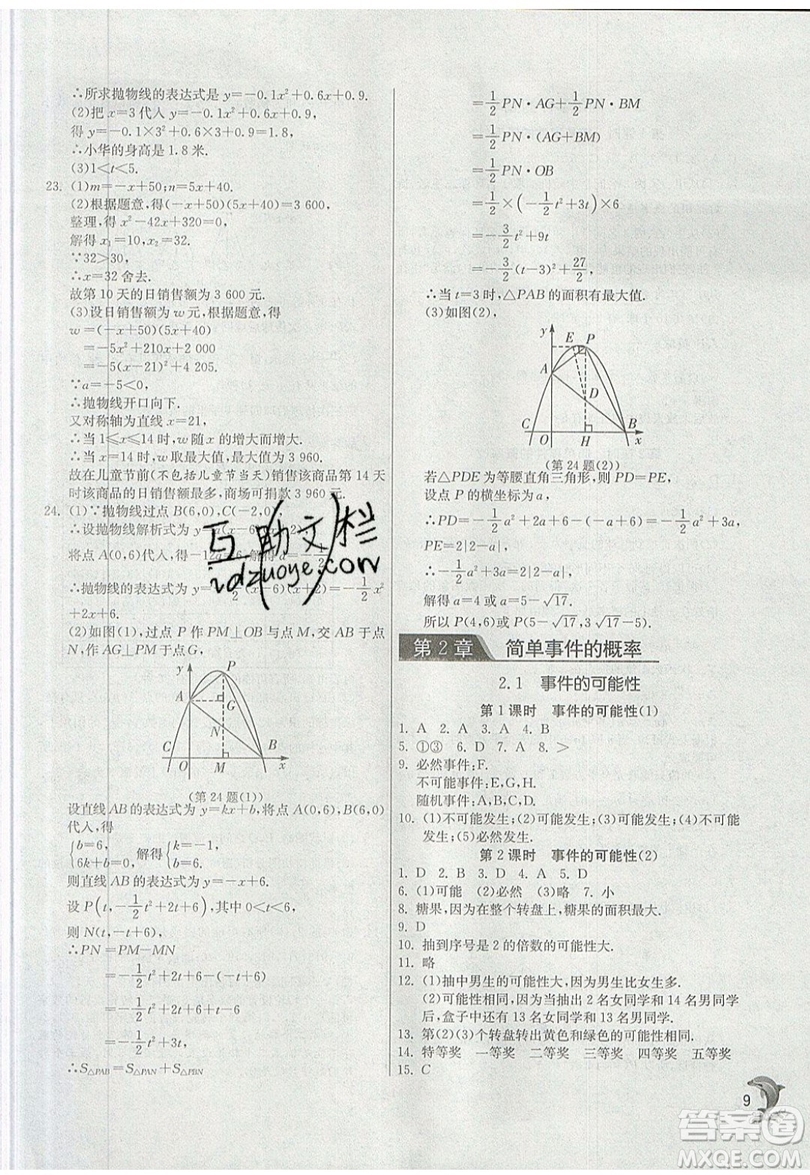 ∴所求抛物线的表达式是 y=-0.1x²+0.6x+0.9.
(2)把 x=3 代入 y=-0.1x²+0.6x+0.9,
得 y=-0.1×3²+0.6×3+0.9=1.8.
∴小华的身高是 1.8 米.
(3)1<t<5.
23. (1)m=-x+50;n=5x+40.
(2)根据题意,得(-x+50)(5x+40)=3 600,
整理,得 x²-42x+320=0,
解得 x₁=10,x₂=32.
∵32>30,
∴x=32 舍去.
故第 10 天的日销售额为 3 600 元.
(3)设日销售额为 w 元,根据题意,得
w=(-x+50)(5x+40)
=-5x²+210x+2 000
=-5(x-21)²+4 205.
∵a=-5<0,
∴抛物线开口向下.
又对称轴为直线 x=21,
∴当 1≤x≤14 时,w 随 x 的增大而增大.
∴当 x=14 时,w取最大值为 3 960.
故在儿童节前(不包括儿童节当天)销售该商品第 14 天
时该商品的日销售额最多,商场可捐款 3 960 元.
24. (1)∵抛物线过点 B(6,0),C(-2,0),
∴设抛物线解析式为 y=a(x-6)(x+2),
将点 A(0,6)代入,得-12a=6,解得 a=-1/2,
∴抛物线的表达式为 y=-1/2(x-6)(x+2)=-1/2x²
+2x+6.
(2)如图(1),过点 P 作 PM⊥OB 与点 M,交 AB 于
点 N,作 AG⊥PM 于点 G,
y
P
A
G
N
C
O
M
B
x
(第 24 题(1))
设直线 AB 的表达式为 y=kx+b,将点 A(0,6)、B(6,0)
代入,得
{b=6, 6k+b=0, 解得 {k=-1, b=6,
则直线 AB 的表达式为 y=-x+6.
设 P(t,-1/2t²+2t+6),其中 0<t<6,
则 N(t,-t+6),
∴PN=PM-MN
=-1/2t²+2t+6-(-t+6)
=-1/2t²+2t+6+t-6
=-1/2t²+3t,
∴S△PAB=S△PAN+S△PBN
=1/2PN·AG+1/2PN·BM
=1/2PN·(AG+BM)
=1/2PN·OB
=1/2×(-1/2t²+3t)×6
=-3/2t²+9t
=-3/2(t-3)²+27/2,
∴当 t=3 时,△PAB 的面积有最大值.
(3)如图(2),
y
E
P
A
D
C
O
H
B
x
(第 24 题(2))
若△PDE 为等腰直角三角形,则 PD=PE,
设点 P 的横坐标为 a,
∴PD=-1/2a²+2a+6-(-a+6)=-1/2a²+3a,
PE=2|2-a|,
∴-1/2a²+3a=2|2-a|,
解得 a=4 或 a=5-√17,
所以 P(4,6)或 P(5-√17,3√17-5).
第 2 章 简单事件的概率
2.1 事件的可能性
第 1 课时 事件的可能性(1)
1. A 2. A 3. D 4. A
5. ①③ 6. D 7. A 8. >
9. 必然事件:F.
不可能事件:E,G,H.
随机事件:A,B,C,D.
10. (1)不可能发生;(2)可能发生;(3)可能发生;(4)不可能
发生;(5)必然发生.
第 2 课时 事件的可能性(2)
1. D 2. B 3. D 4. A 5. D
6. (1)可能 (2)必然 (3)不可能 7. 小
8. 糖果,因为在整个转盘上,糖果的面积最大.
9. D
10. 抽到序号是 2 的倍数的可能性大.
11. 略
12. (1)抽中男生的可能性大,因为男生比女生多.
(2)可能性相同,因为当抽出 2 名女同学和 14 名男同学
后,盒子中还有 13 名女同学和 13 名男同学.
13. 第(2)(3)个转盘转出黄色和绿色的可能性相同.
14. 特等奖 一等奖 二等奖 三等奖 四等奖 五等奖
15. C
9
互助文栏
hdzuoye.com
答案圈
MXQE.COM